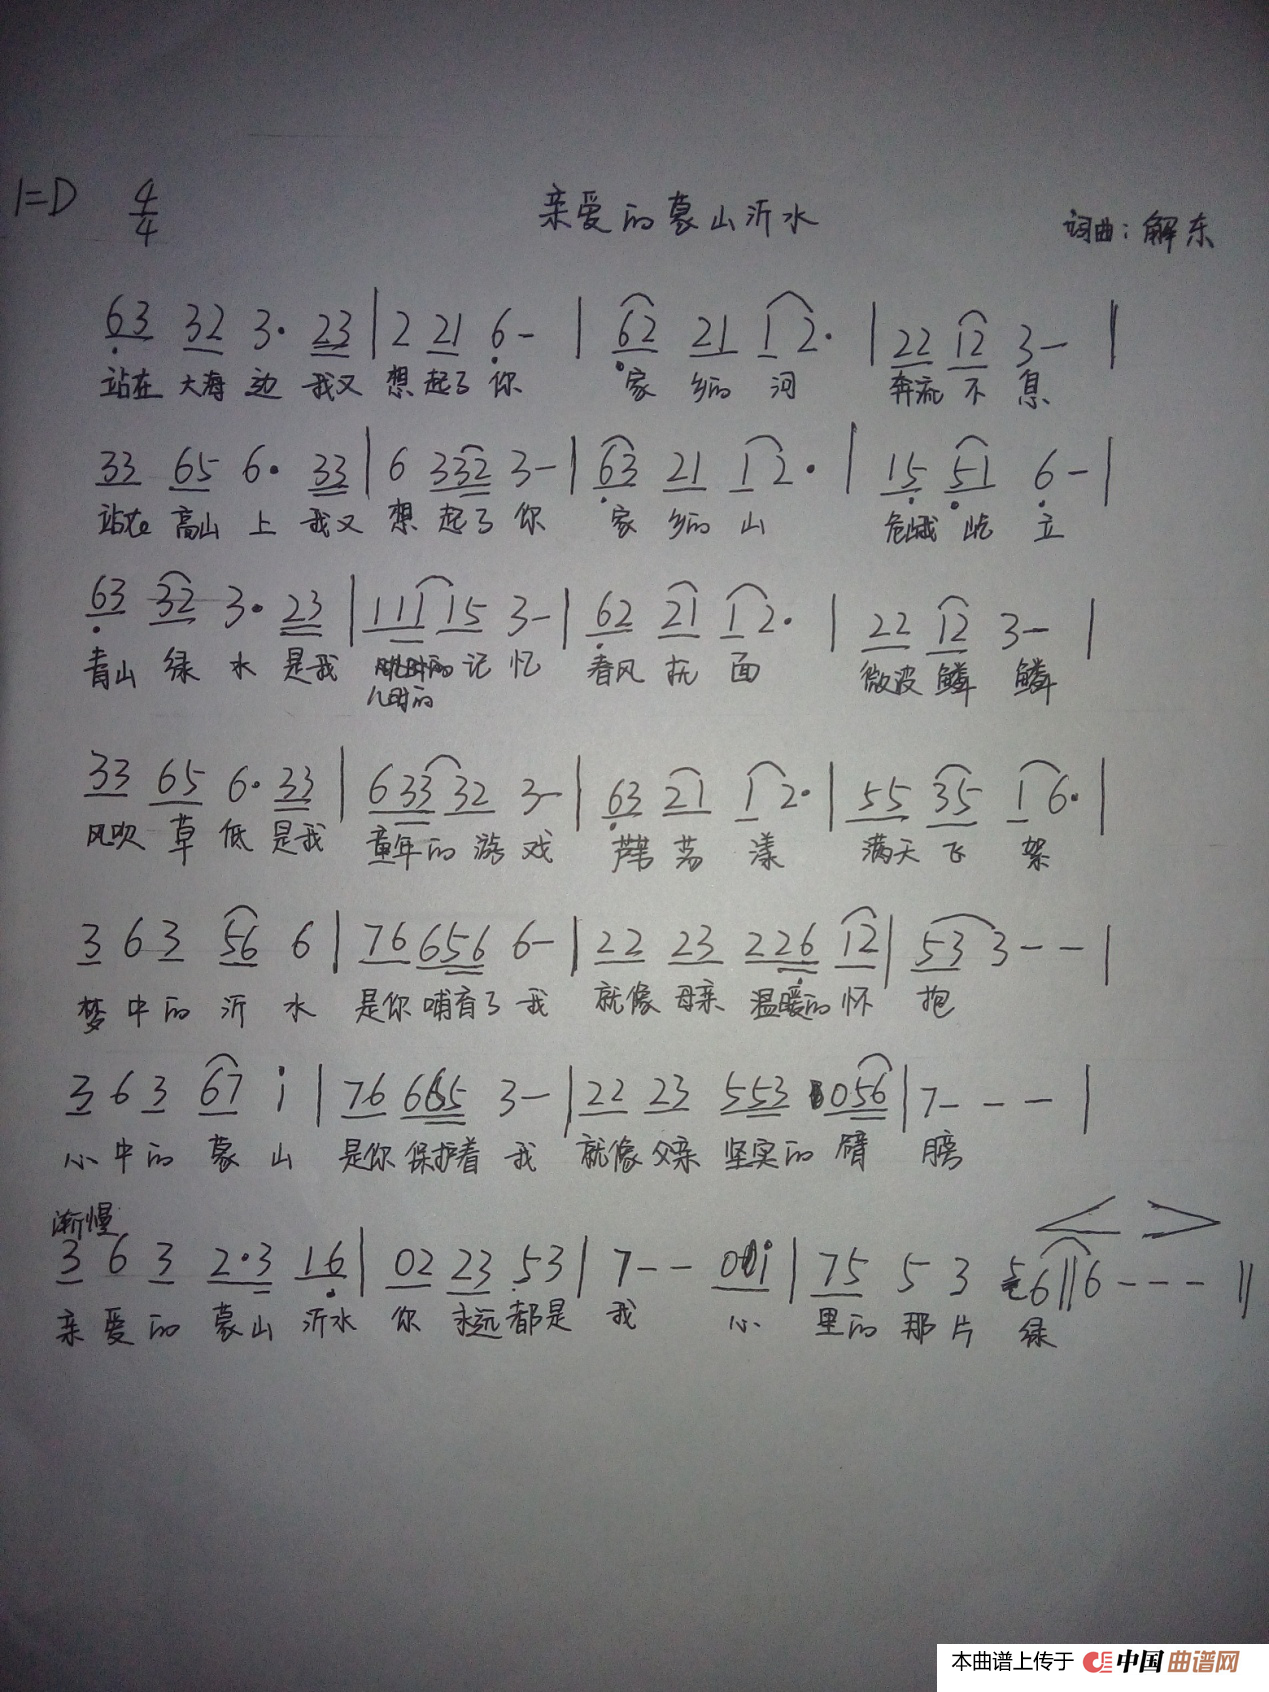 1=D 4/4 亲爱的蒙山沂水 词曲：解东
63 32 3· 23 | 2 21 6 - | 62 21 1 2· | 22 12 3 - |
站在 大海 边 我又 想 起了 你 家 乡的 河 奔流 不 息
33 65 6· 33 | 6 332 3 - | 63 21 1 2· | 15 51 6 - |
站在 高山 上 我又 想 起了 你 家 乡的 山 危峨 屹 立
63 32 3· 23 | 111 15 3 - | 62 21 1 2· | 22 12 3 - |
青山 绿 水 是我 记 忆 春风 抚 面 微波 鳞 鳞
儿时的
33 65 6· 33 | 633 32 3 - | 63 21 1 2· | 55 35 1 6· |
风吹 草 低 是我 童年的 游 戏 芦苇 荡 漾 满天 飞 絮
3 6 3 56 6 | 76 656 6 - | 22 23 226 12 | 53 3 - - |
梦 中 的 沂 水 是你 哺育了 我 就像 母亲 温暖的 怀 抱
3 6 3 67 i | 76 6665 3 - | 22 23 553 056 | 7 - - - |
心 中 的 蒙 山 是你 保护着 我 就像 父亲 坚实的 臂 膀
渐慢
3 6 3 2·3 16 | 02 23 53 | 7 - - 0i | 75 5 3 56 || 6 - - - ||
亲 爱 的 蒙山 沂水 你 永远 都是 我 心 里的 那 片 绿
本曲谱上传于 中国曲谱网